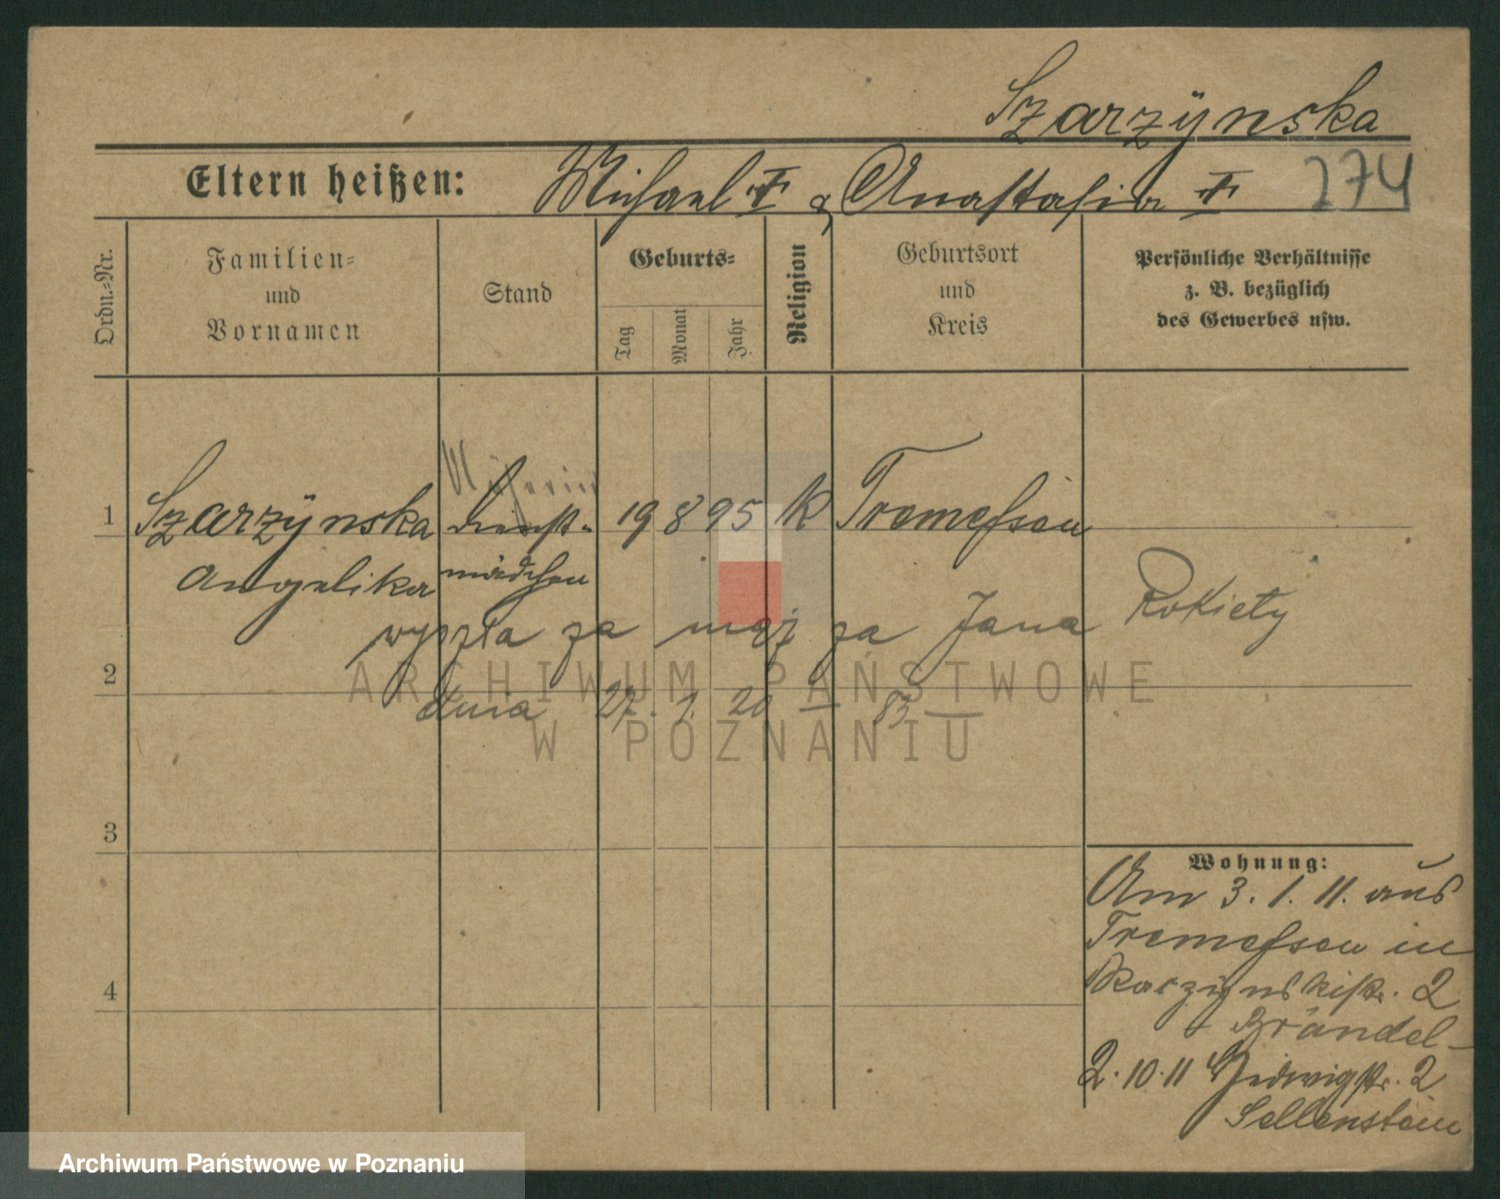 Szarzÿnska
Eltern heißen: Michael † & Anastasia † 274
Ordn.=Nr.
Familien=
und
Vornamen
Stand
Geburts=
Tag Monat Jahr
Religion
Geburtsort
und
Kreis
Persönliche Verhältnisse
z. B. bezüglich
des Gewerbes usw.
Näherin
1 Szarzÿnska Dienst= 19 8 95 k Tremessen
Angelika mädchen
wyszła za mąż za Jana Rokiety
2
dnia 27. 1. 20 — 83 —
3
4
Wohnung:
Am 3. 1. 11. aus
Tremessen in
Karzÿnskistr. 2
Brändel
2. 10. 11 Hedwigstr. 2
Sellenstein
ARCHIWUM PAŃSTWOWE
W POZNANIU
Archiwum Państwowe w Poznaniu